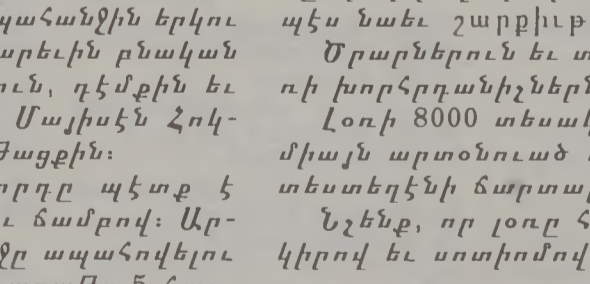 պահանջին երկու
արեւին բնական
ուն, դէմքին եւ
Մայիսէն Հոկ-
ծացքին:
որդը պէտք է
ւ ճամբով: Ար-
ջը ապահովելու
պէս նաեւ շարքիւթ
Ծրարներուն եւ տ
ռի խորհրդանիշներն
Լօռի 8000 տեսակ
միայն արտօնուած
տեստեղէնի ճարտար
Նշենք, որ լօռը հ
կիրով եւ ստիոմով